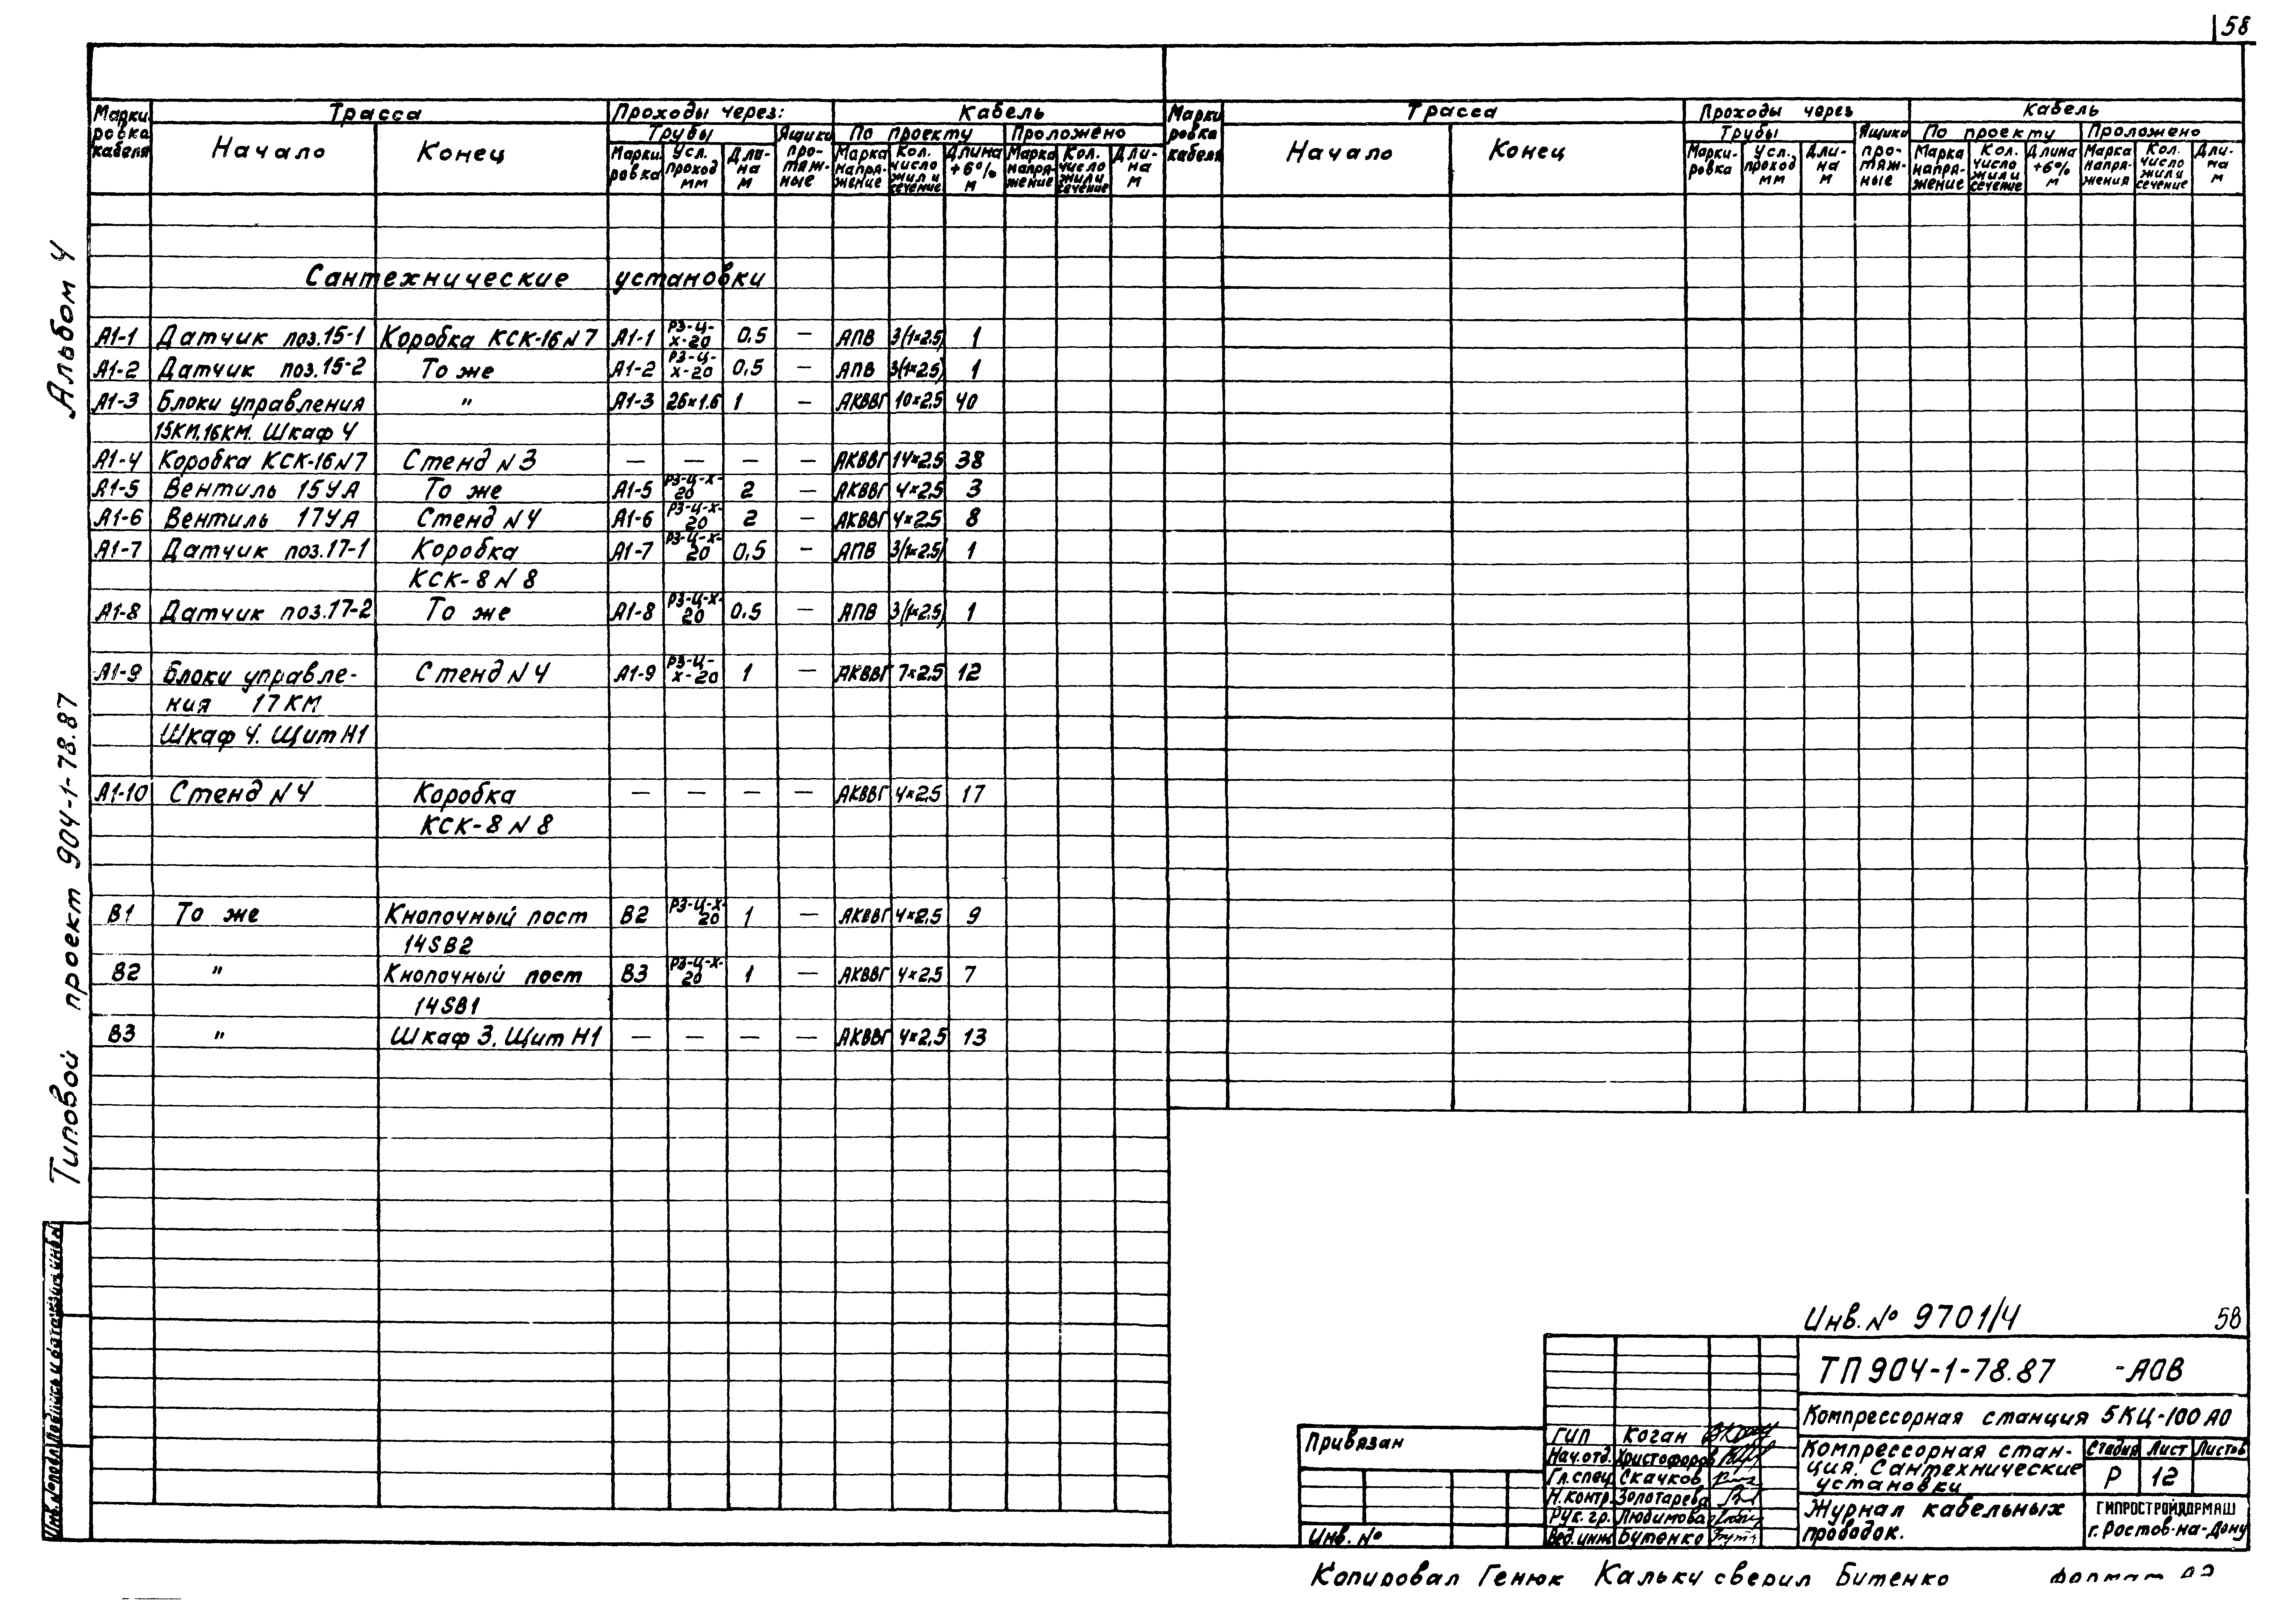 58
Альбом 4
Типовой проект 904-1-78.87
Марки-ровка кабеля | Трасса | Проходы через: | Кабель
Начало | Конец | Трубы | Ящики про-тяж-ные | По проекту | Проложено
Марки-ровка | Усл. проход мм | Дли-на м | Марка напря-жение | Кол. число жил и сечение | Длина +6% м | Марка напря-жение | Кол. число жил и сечение | Дли-на м
Марки ровка кабеля | Трасса | Проходы через | Кабель
Начало | Конец | Трубы | Ящики про-тяж-ные | По проекту | Проложено
Марки-ровка | Усл. проход мм | Дли-на м | Марка напря-жение | Кол. число жил и сечение | Длина +6% м | Марка напря-жения | Кол. число жил и сечение | Дли-на м
Сантехнические установки
А1-1 Датчик поз.15-1 Коробка КСК-16N7 А1-1 РЗ-Ц-Х-20 0,5 — АПВ 3(1×2.5) 1
А1-2 Датчик поз.15-2 То же А1-2 РЗ-Ц-Х-20 0,5 — АПВ 3(1×2.5) 1
А1-3 Блоки управления " А1-3 26×1.6 1 — АКВВГ 10×2.5 40
15КМ,16КМ. Шкаф 4
А1-4 Коробка КСК-16N7 Стенд N3 — — — — АКВВГ 14×2.5 38
А1-5 Вентиль 15УА То же А1-5 РЗ-Ц-Х-20 2 — АКВВГ 4×2.5 3
А1-6 Вентиль 17УА Стенд N4 А1-6 РЗ-Ц-Х-20 2 — АКВВГ 4×2.5 8
А1-7 Датчик поз.17-1 Коробка А1-7 РЗ-Ц-Х-20 0,5 — АПВ 3(1×2.5) 1
КСК-8N8
А1-8 Датчик поз.17-2 То же А1-8 РЗ-Ц-Х-20 0.5 — АПВ 3(1×2.5) 1
А1-9 Блоки управле- Стенд N4 А1-9 РЗ-Ц-Х-20 1 — АКВВГ 7×2.5 12
ния 17КМ
Шкаф 4. Щит Н1
А1-10 Стенд N4 Коробка — — — — АКВВГ 4×2.5 17
КСК-8N8
В1 То же Кнопочный пост В2 РЗ-Ц-Х-20 1 — АКВВГ 4×2.5 9
14SB2
В2 " Кнопочный пост В3 РЗ-Ц-Х-20 1 — АКВВГ 4×2.5 7
14SB1
В3 " Шкаф 3. Щит Н1 — — — — АКВВГ 4×2.5 13
Инв.№ 9701/4 58
ТП904-1-78.87 -АОВ
Компрессорная станция 5КЦ-100А0
Компрессорная стан-
ция. Сантехнические
установки
Стадия Лист Листов
Р 12
Журнал кабельных
проводок.
ГИПРОСТРОЙДОРМАШ
г. Ростов-на-Дону
Привязан
Инв. №
ГИП Коган
Нач.отд. Христофоров
Гл.спец Скачков
Н.контр. Золотарева
Рук. гр. Любимова
Вед.инж Бутенко
Инв.№подл. Подпись и дата
Копировал Генюк Кальку сверил Бутенко формат А2